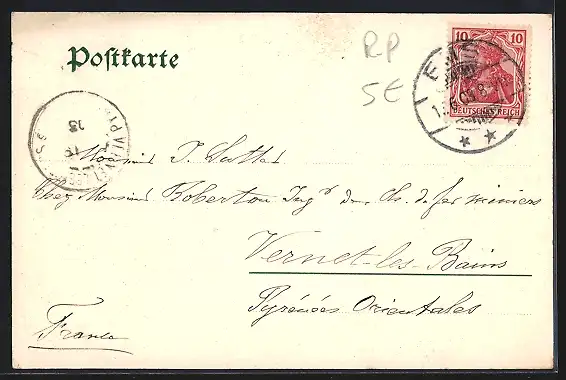 Postkarte
RP
5€
10 10
DEUTSCHES REICH
EMS
VERNET
13
Monsieur J.
Chez Monsieur Roberton Ingr des Ch. de fer miniers
Vernet-les-Bains
Pyrénées Orientales
France